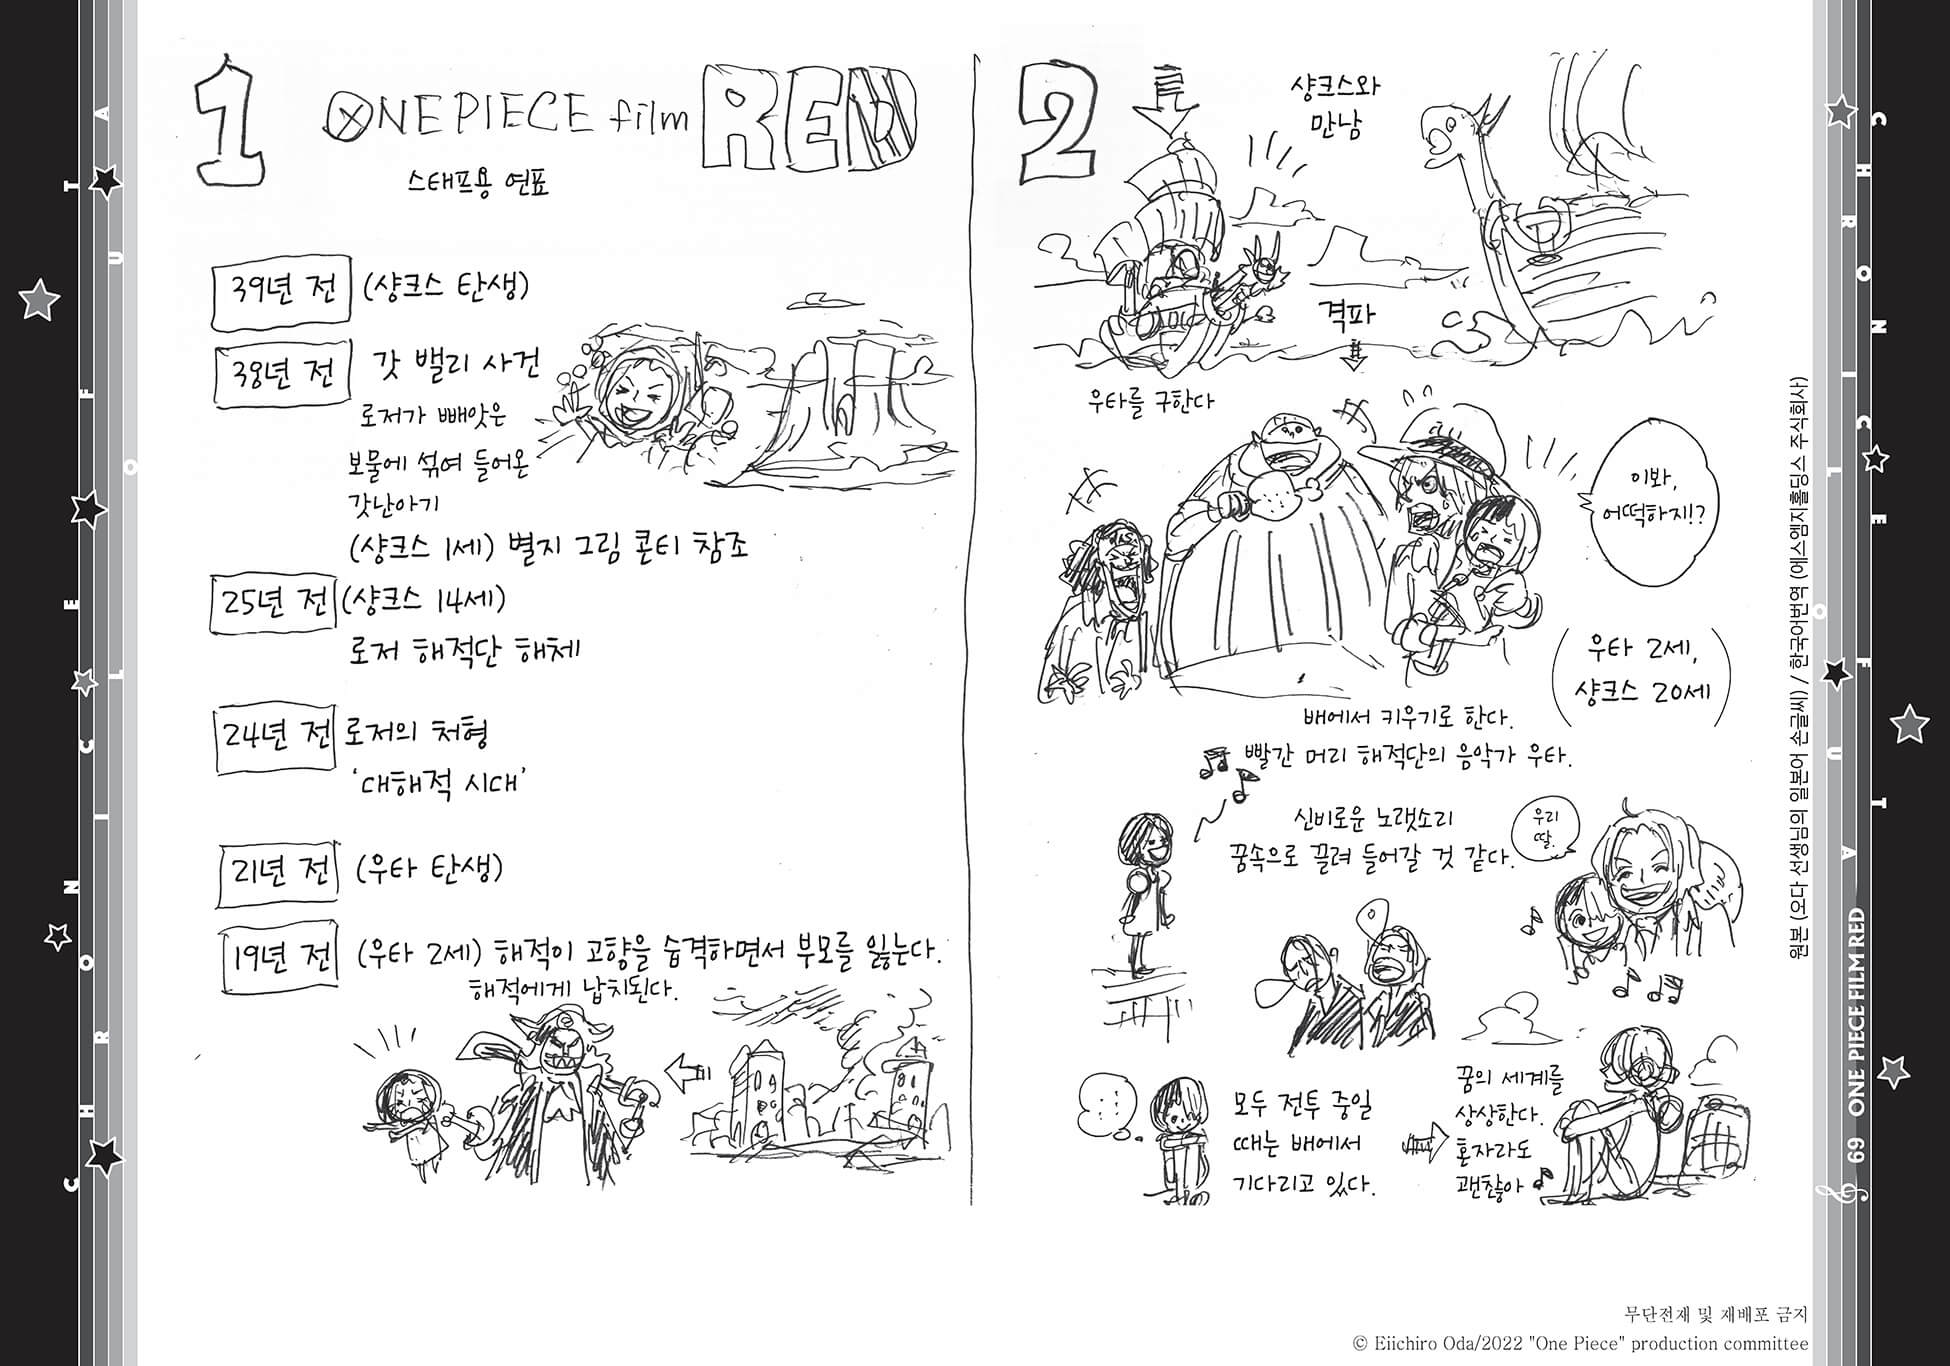 1
ONE PIECE film RED
스태프용 연표
39년 전 (샹크스 탄생)
38년 전 갓 밸리 사건
로저가 빼앗은
보물에 섞여 들어온
갓난아기
(샹크스 1세) 별지 그림 콘티 참조
25년 전 (샹크스 14세)
로저 해적단 해체
24년 전 로저의 처형
‘대해적 시대’
21년 전 (우타 탄생)
19년 전 (우타 2세) 해적이 고향을 습격하면서 부모를 잃는다.
해적에게 납치된다.
2
샹크스와
만남
격파
우타를 구한다
이봐,
어떡하지!?
(우타 2세,
샹크스 20세)
배에서 키우기로 한다.
빨간 머리 해적단의 음악가 우타.
신비로운 노랫소리
꿈속으로 끌려 들어갈 것 같다.
우리
딸.
모두 전투 중일
때는 배에서
기다리고 있다.
꿈의 세계를
상상한다.
혼자라도
괜찮아
원본 (오다 선생님의 일본어 손글씨) / 한국어번역 (에스엠지홀딩스 주식회사)
CHRONICLE OF UTA
CHRONICLE OF UTA
69 ONE PIECE FILM RED
무단전재 및 재배포 금지
© Eiichiro Oda/2022 "One Piece" production committee